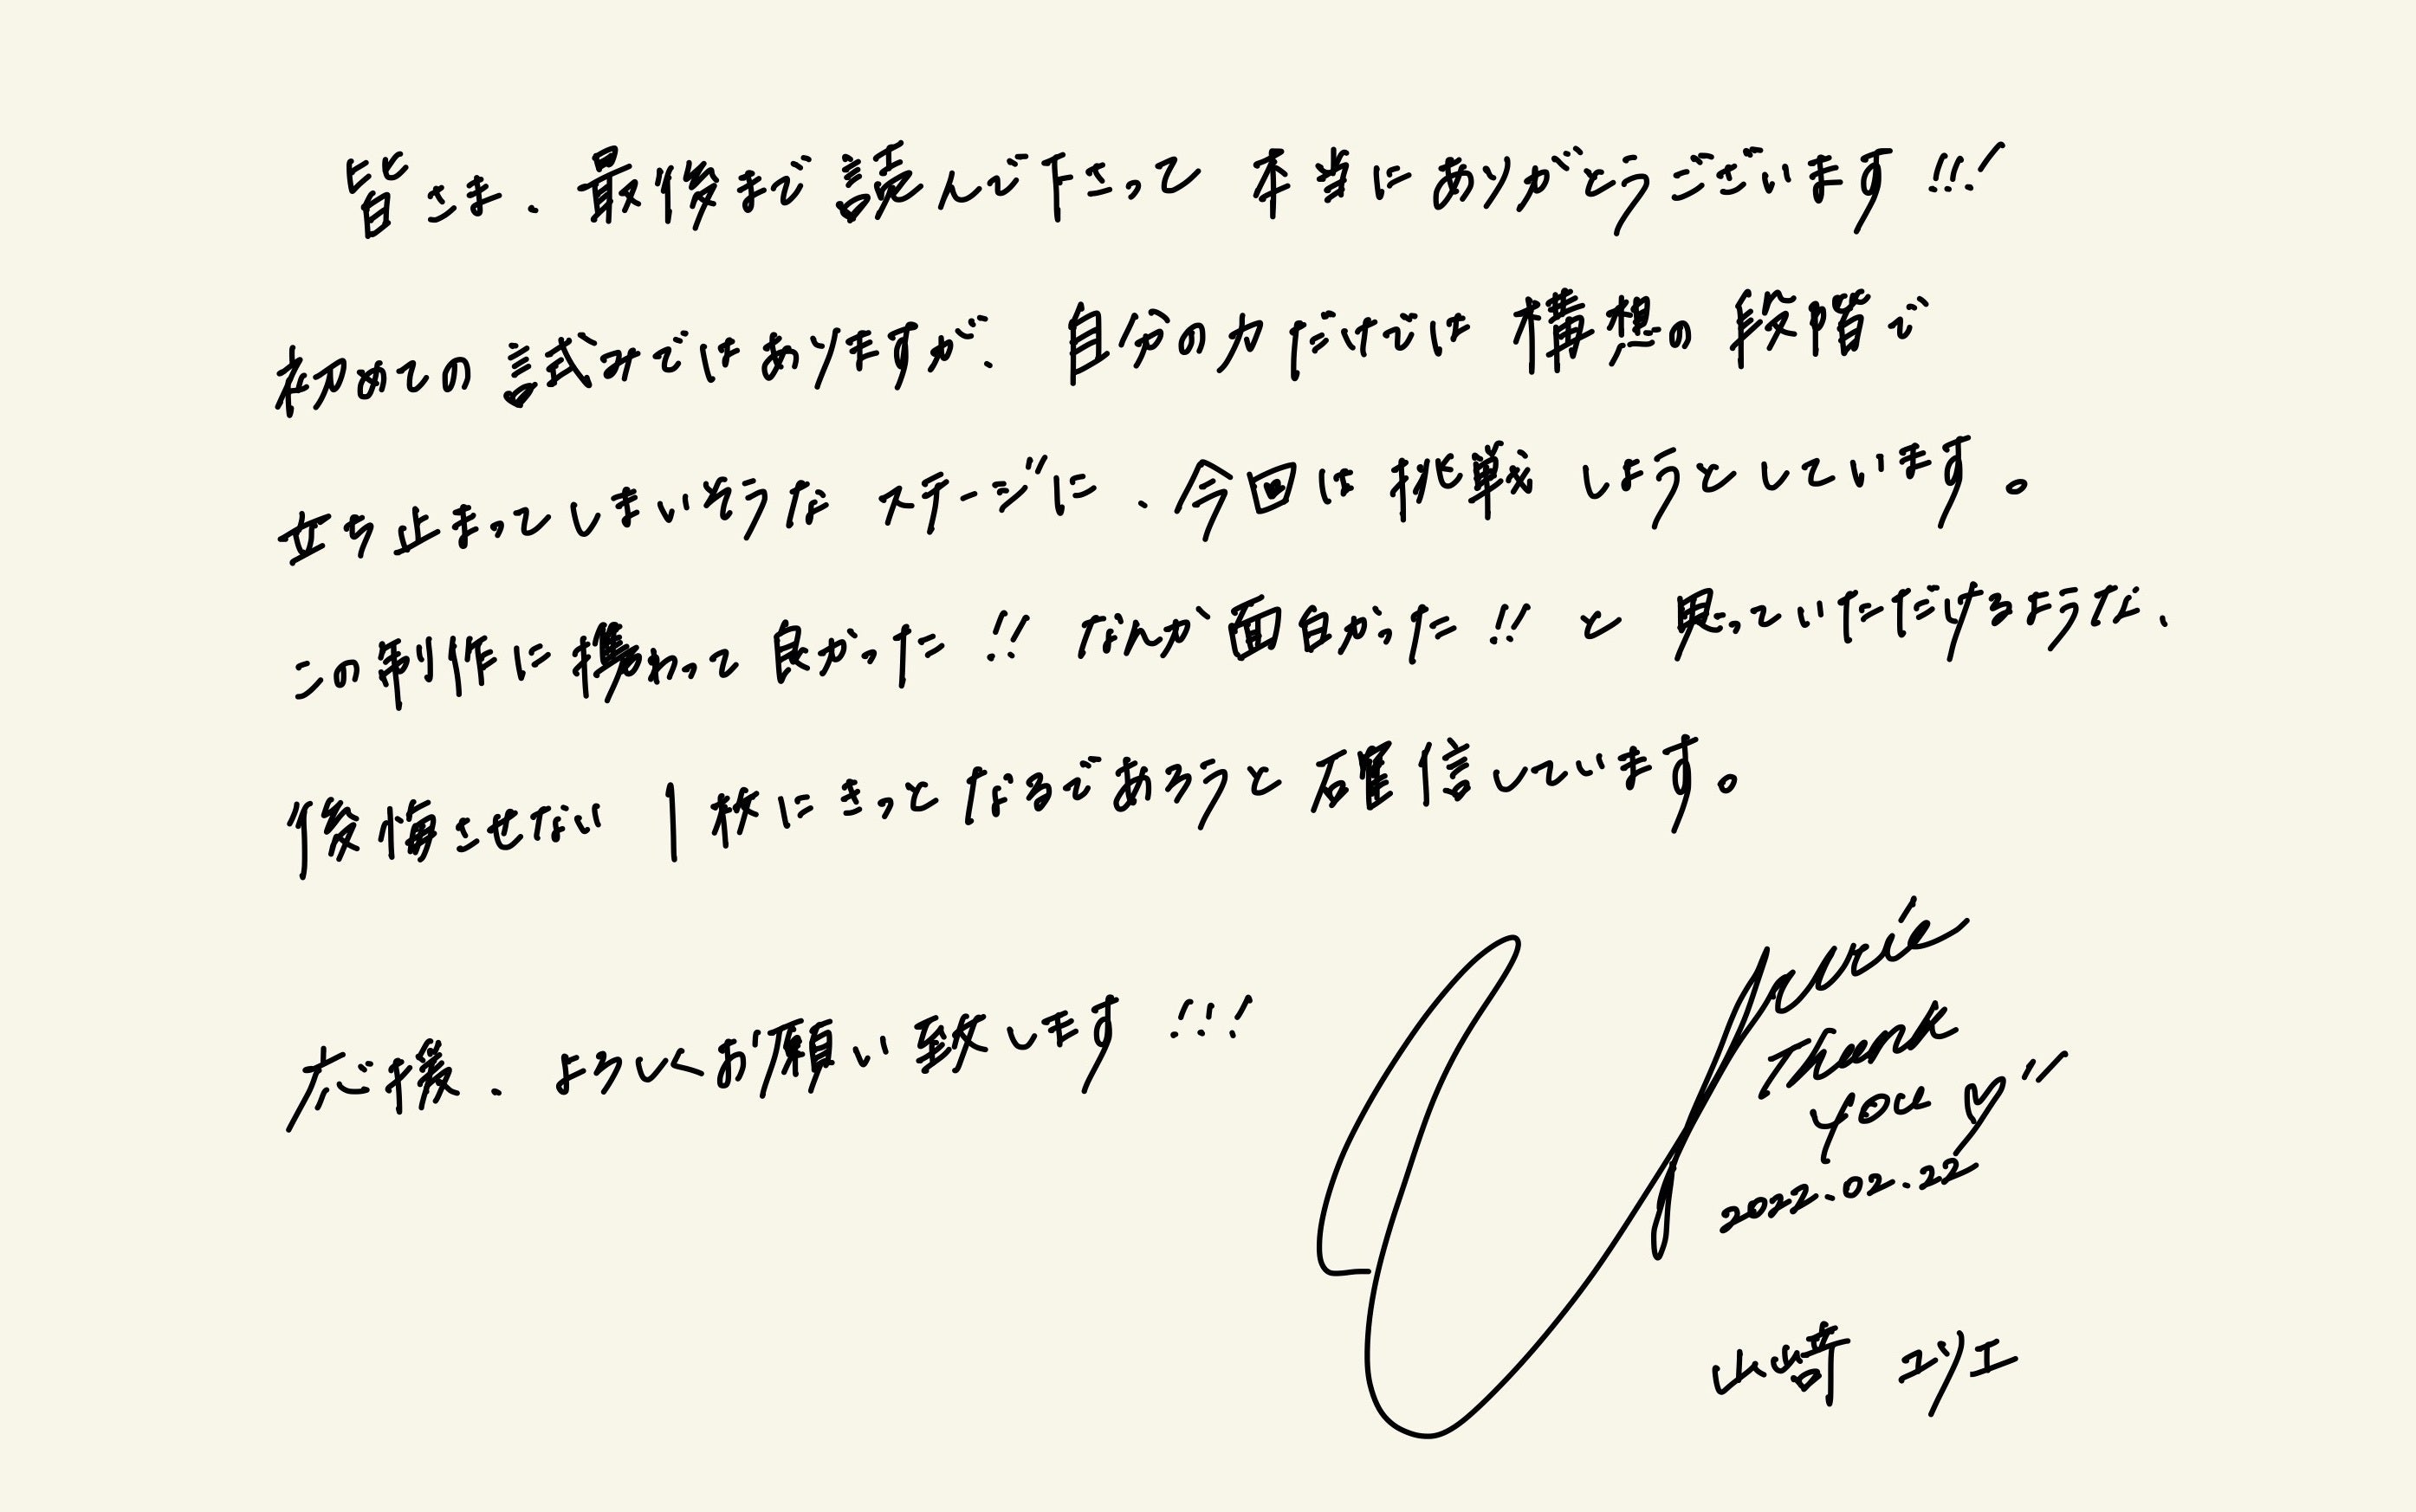 皆さま、最後まで読んで下さって本当にありがとうございます!!!
初めての試みではありますが、自分の力だけでは構想の段階で
立ち止まってしまいそうなステージに、今回は挑戦しようとしています。
この制作に携わって良かった!! なんか面白かった!! と思っていただけるような、
後悔させない1枚にきっとなるであろうと確信しています。
応援、よろしくお願い致します!!!
Thank
you ♡"
2022.02.22
山崎 ユリエ